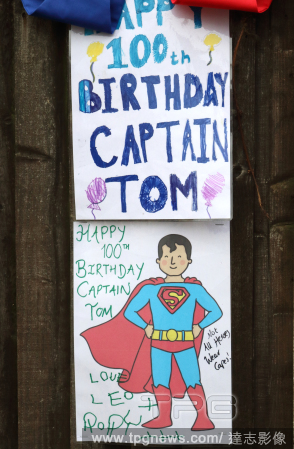 HAPPY
100th
BIRTHDAY
CAPTAIN
TOM
HAPPY
100TH
BIRTHDAY
CAPTAIN
TOM
S
Not
All Heroes
Wear
Capes!
LOVE
LEO
+
TPG
www.tpgnews.com/ 達志影像